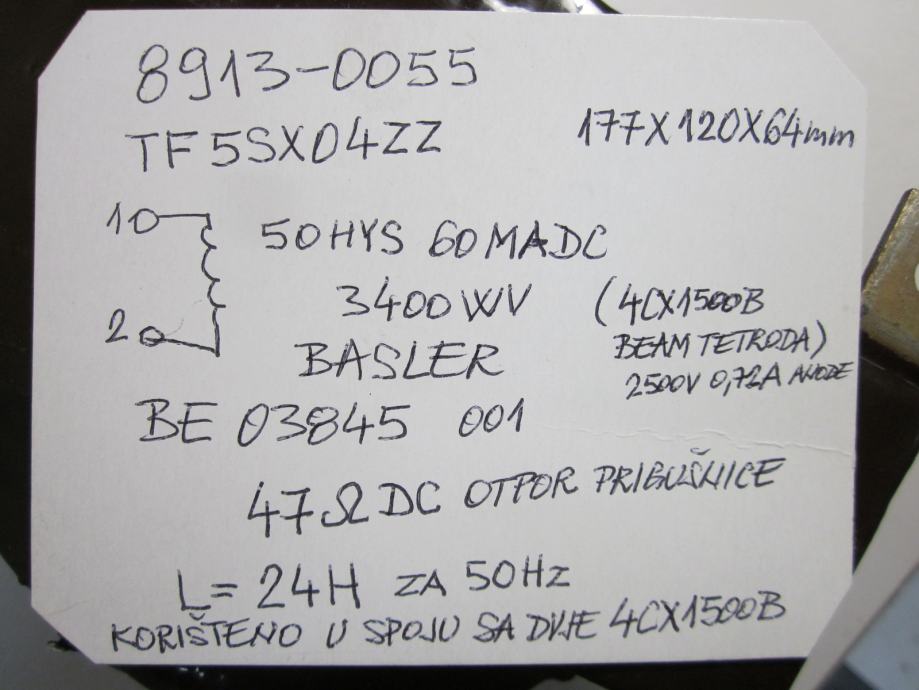 8913-0055
TF5SX04ZZ 177X120X64mm
10 50HYS 60MADC
3400WV (4CX1500B
2 BEAM TETRODA)
BASLER 2500V 0,72A ANODE
BE 03845 001
47Ω DC OTPOR PRIGUŠNICE
L= 24H ZA 50Hz
KORIŠTENO U SPOJU SA DVIJE 4CX1500B